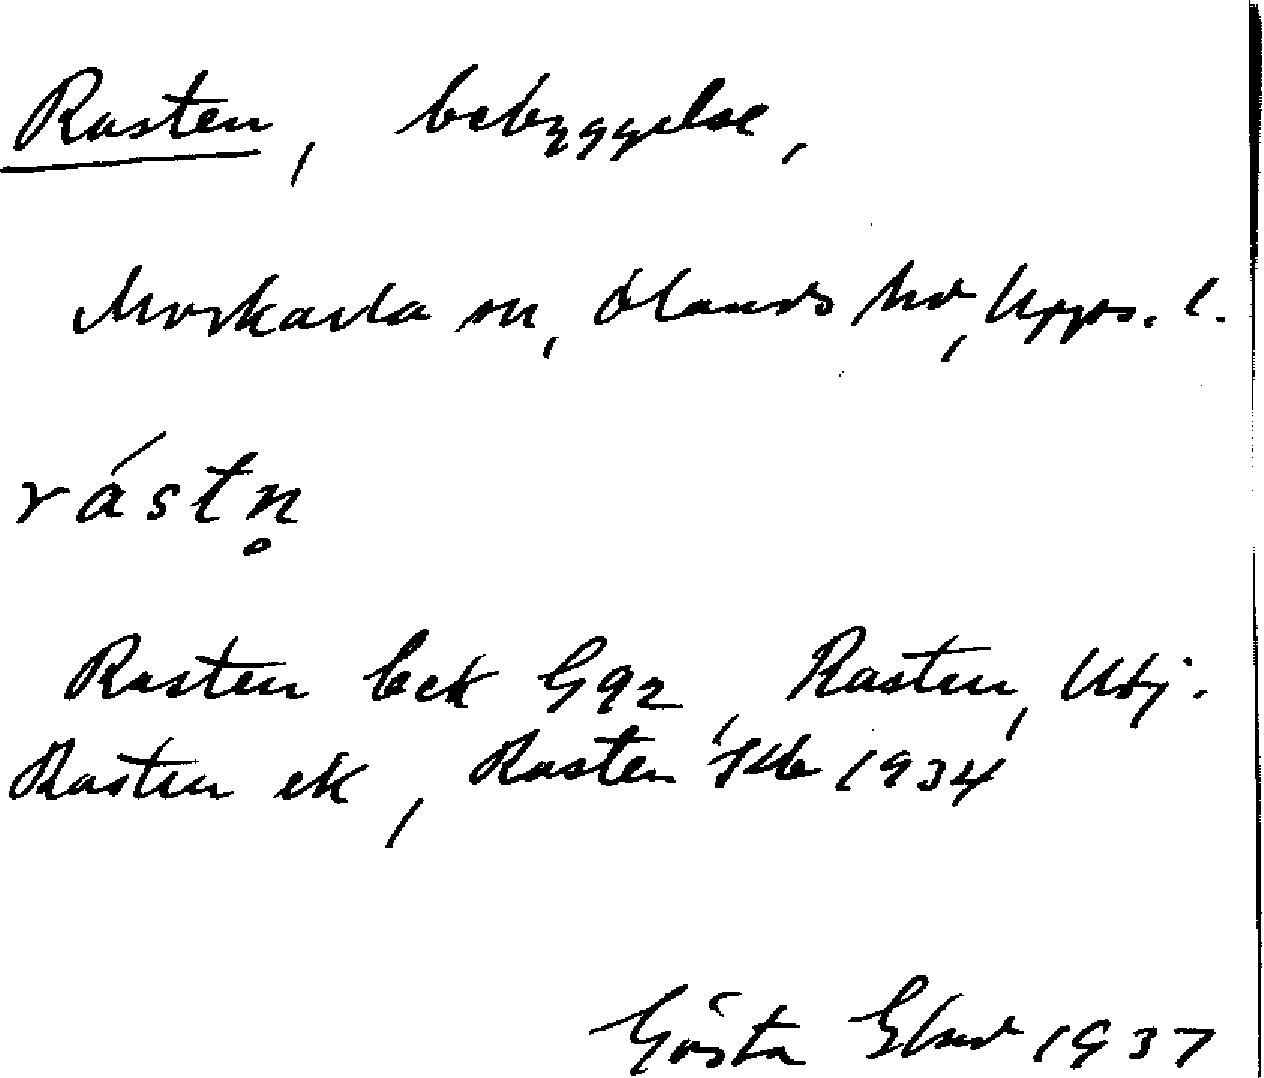 Rasten, bebyggelse,
Morkarla sn, Olands hd, Upps. l.
rástn̥
Rasten bek G92, Rasten, Utj.
Rasten ek, Rasten Jdb 1934
Gösta Ekud 1937